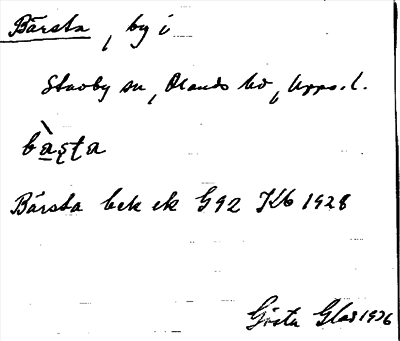 Bärsta, by i
Stavby sn, Olands hd, Upps. l.
bа̀ʂʈa
Bärsta bek ek G92 Kb 1928
Gösta Glas 1936